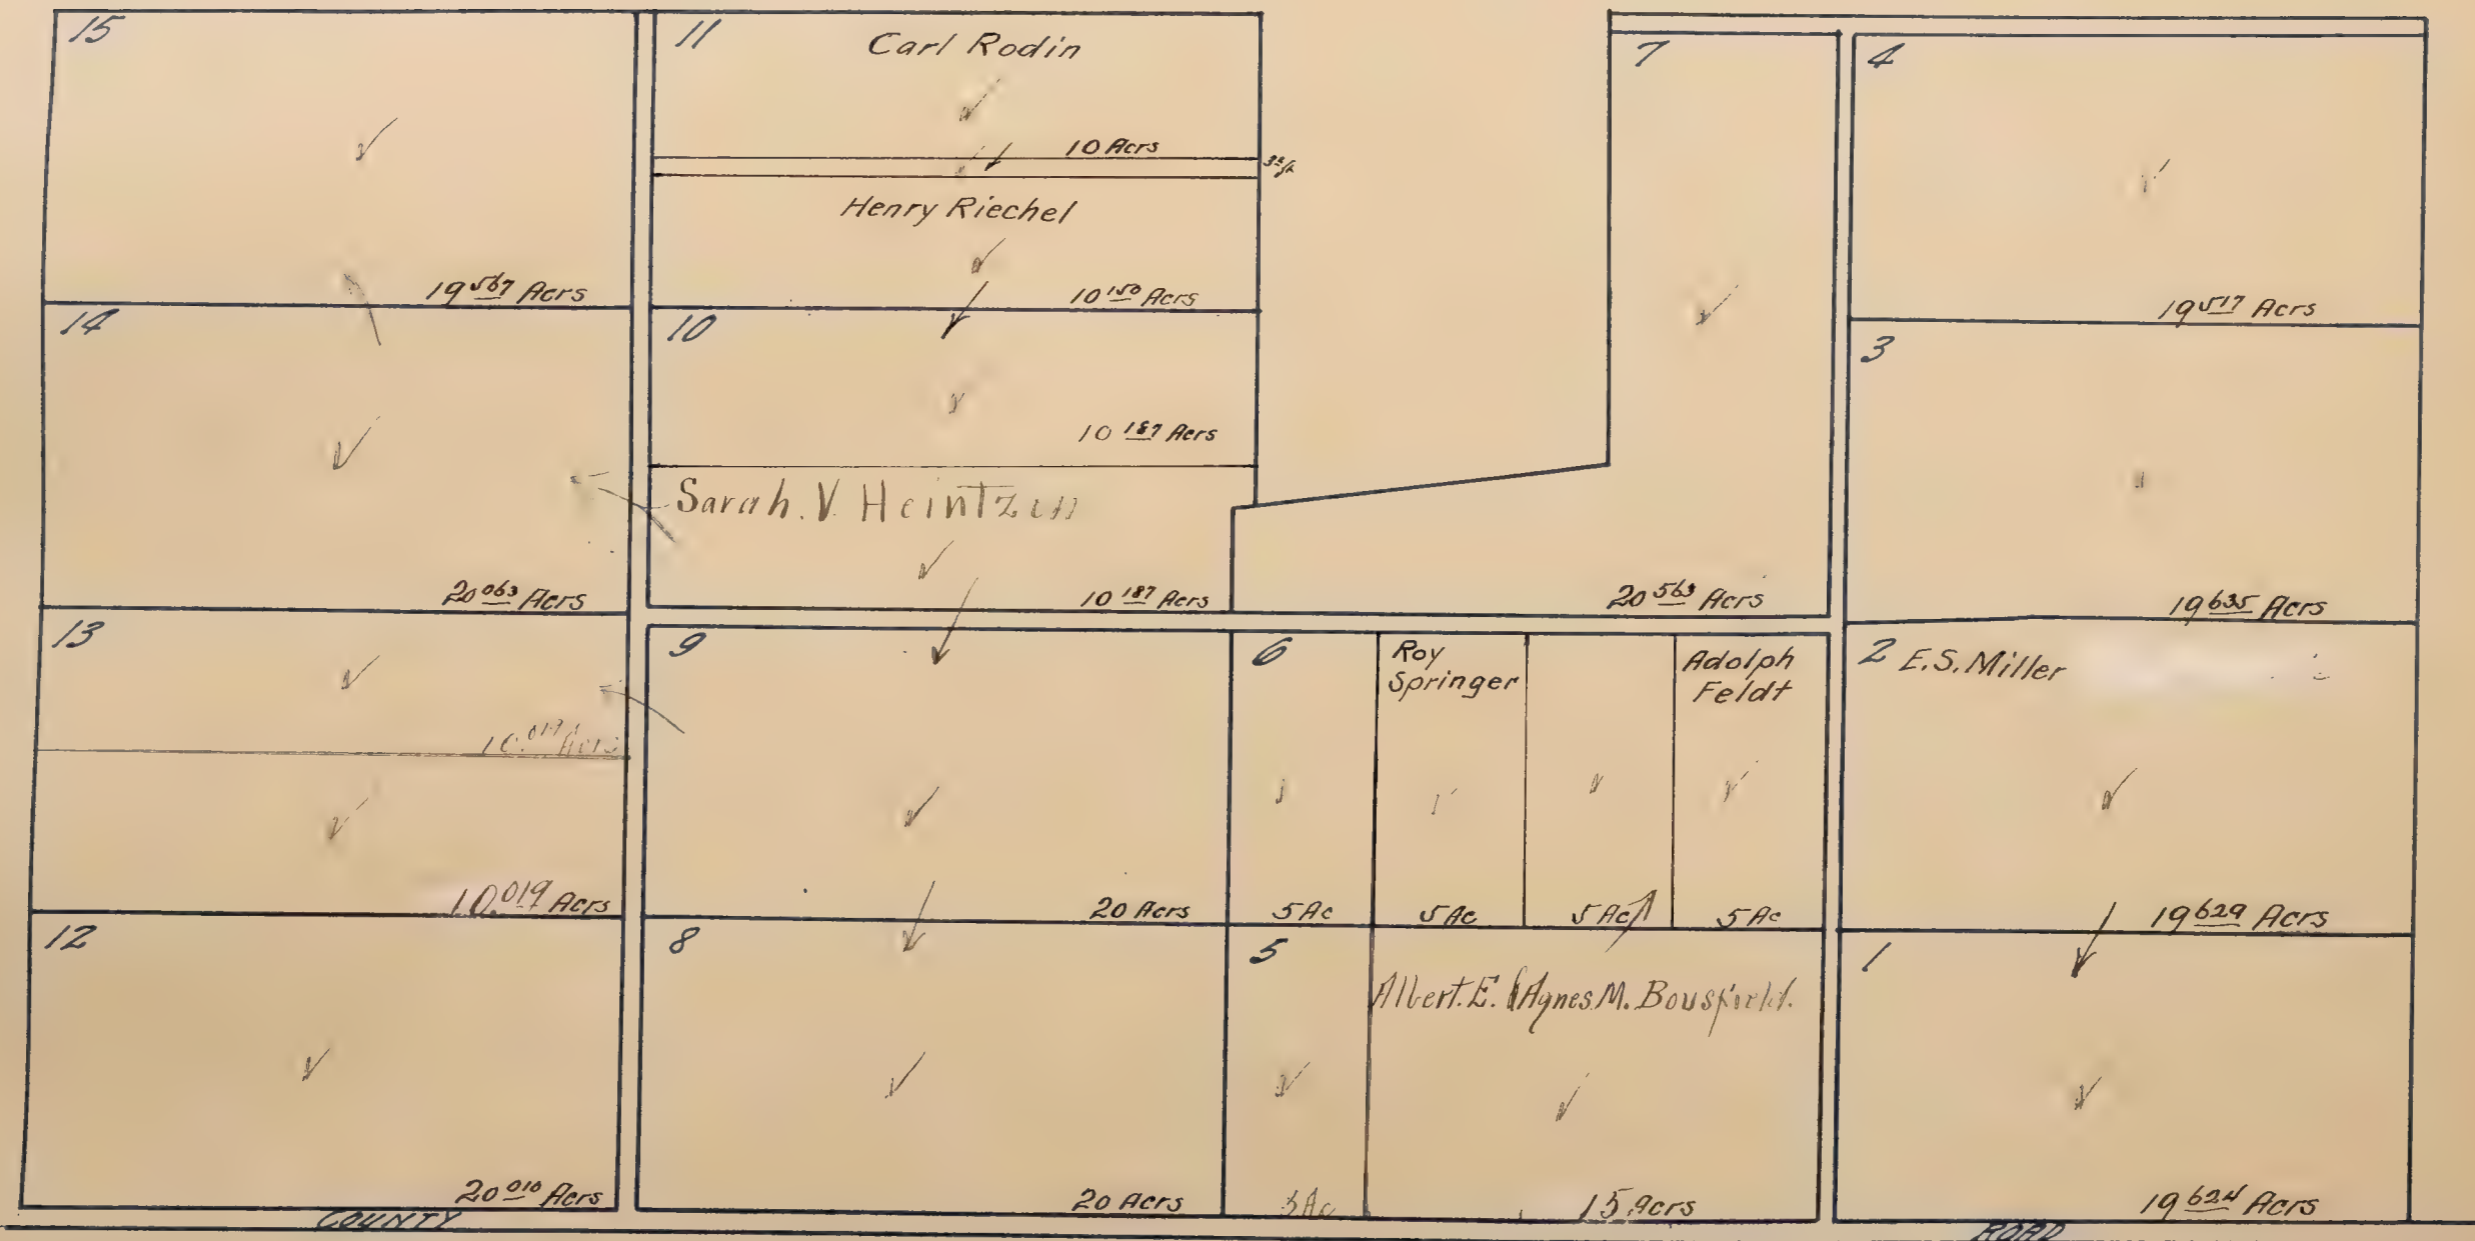 15
19 567 Acrs
14
20 063 Acrs
13
Acrs
10.019 Acrs
12
20 010 Acrs
11
Carl Rodin
10 Acrs
Henry Riechel
10 150 Acrs
10
10 187 Acrs
Sarah. V.
10 187 Acrs
9
20 Acrs
8
20 Acrs
7
20 563 Acrs
6
5 Ac
Roy
Springer
5 Ac
5 Ac
Adolph
Feldt
5 Ac
5
5 Ac
Albert. E. & Agnes M. Bousfield.
15 Acrs
4
19 517 Acrs
3
19 635 Acrs
2 E.S. Miller
19 629 Acrs
1
19 624 Acrs
COUNTY ROAD